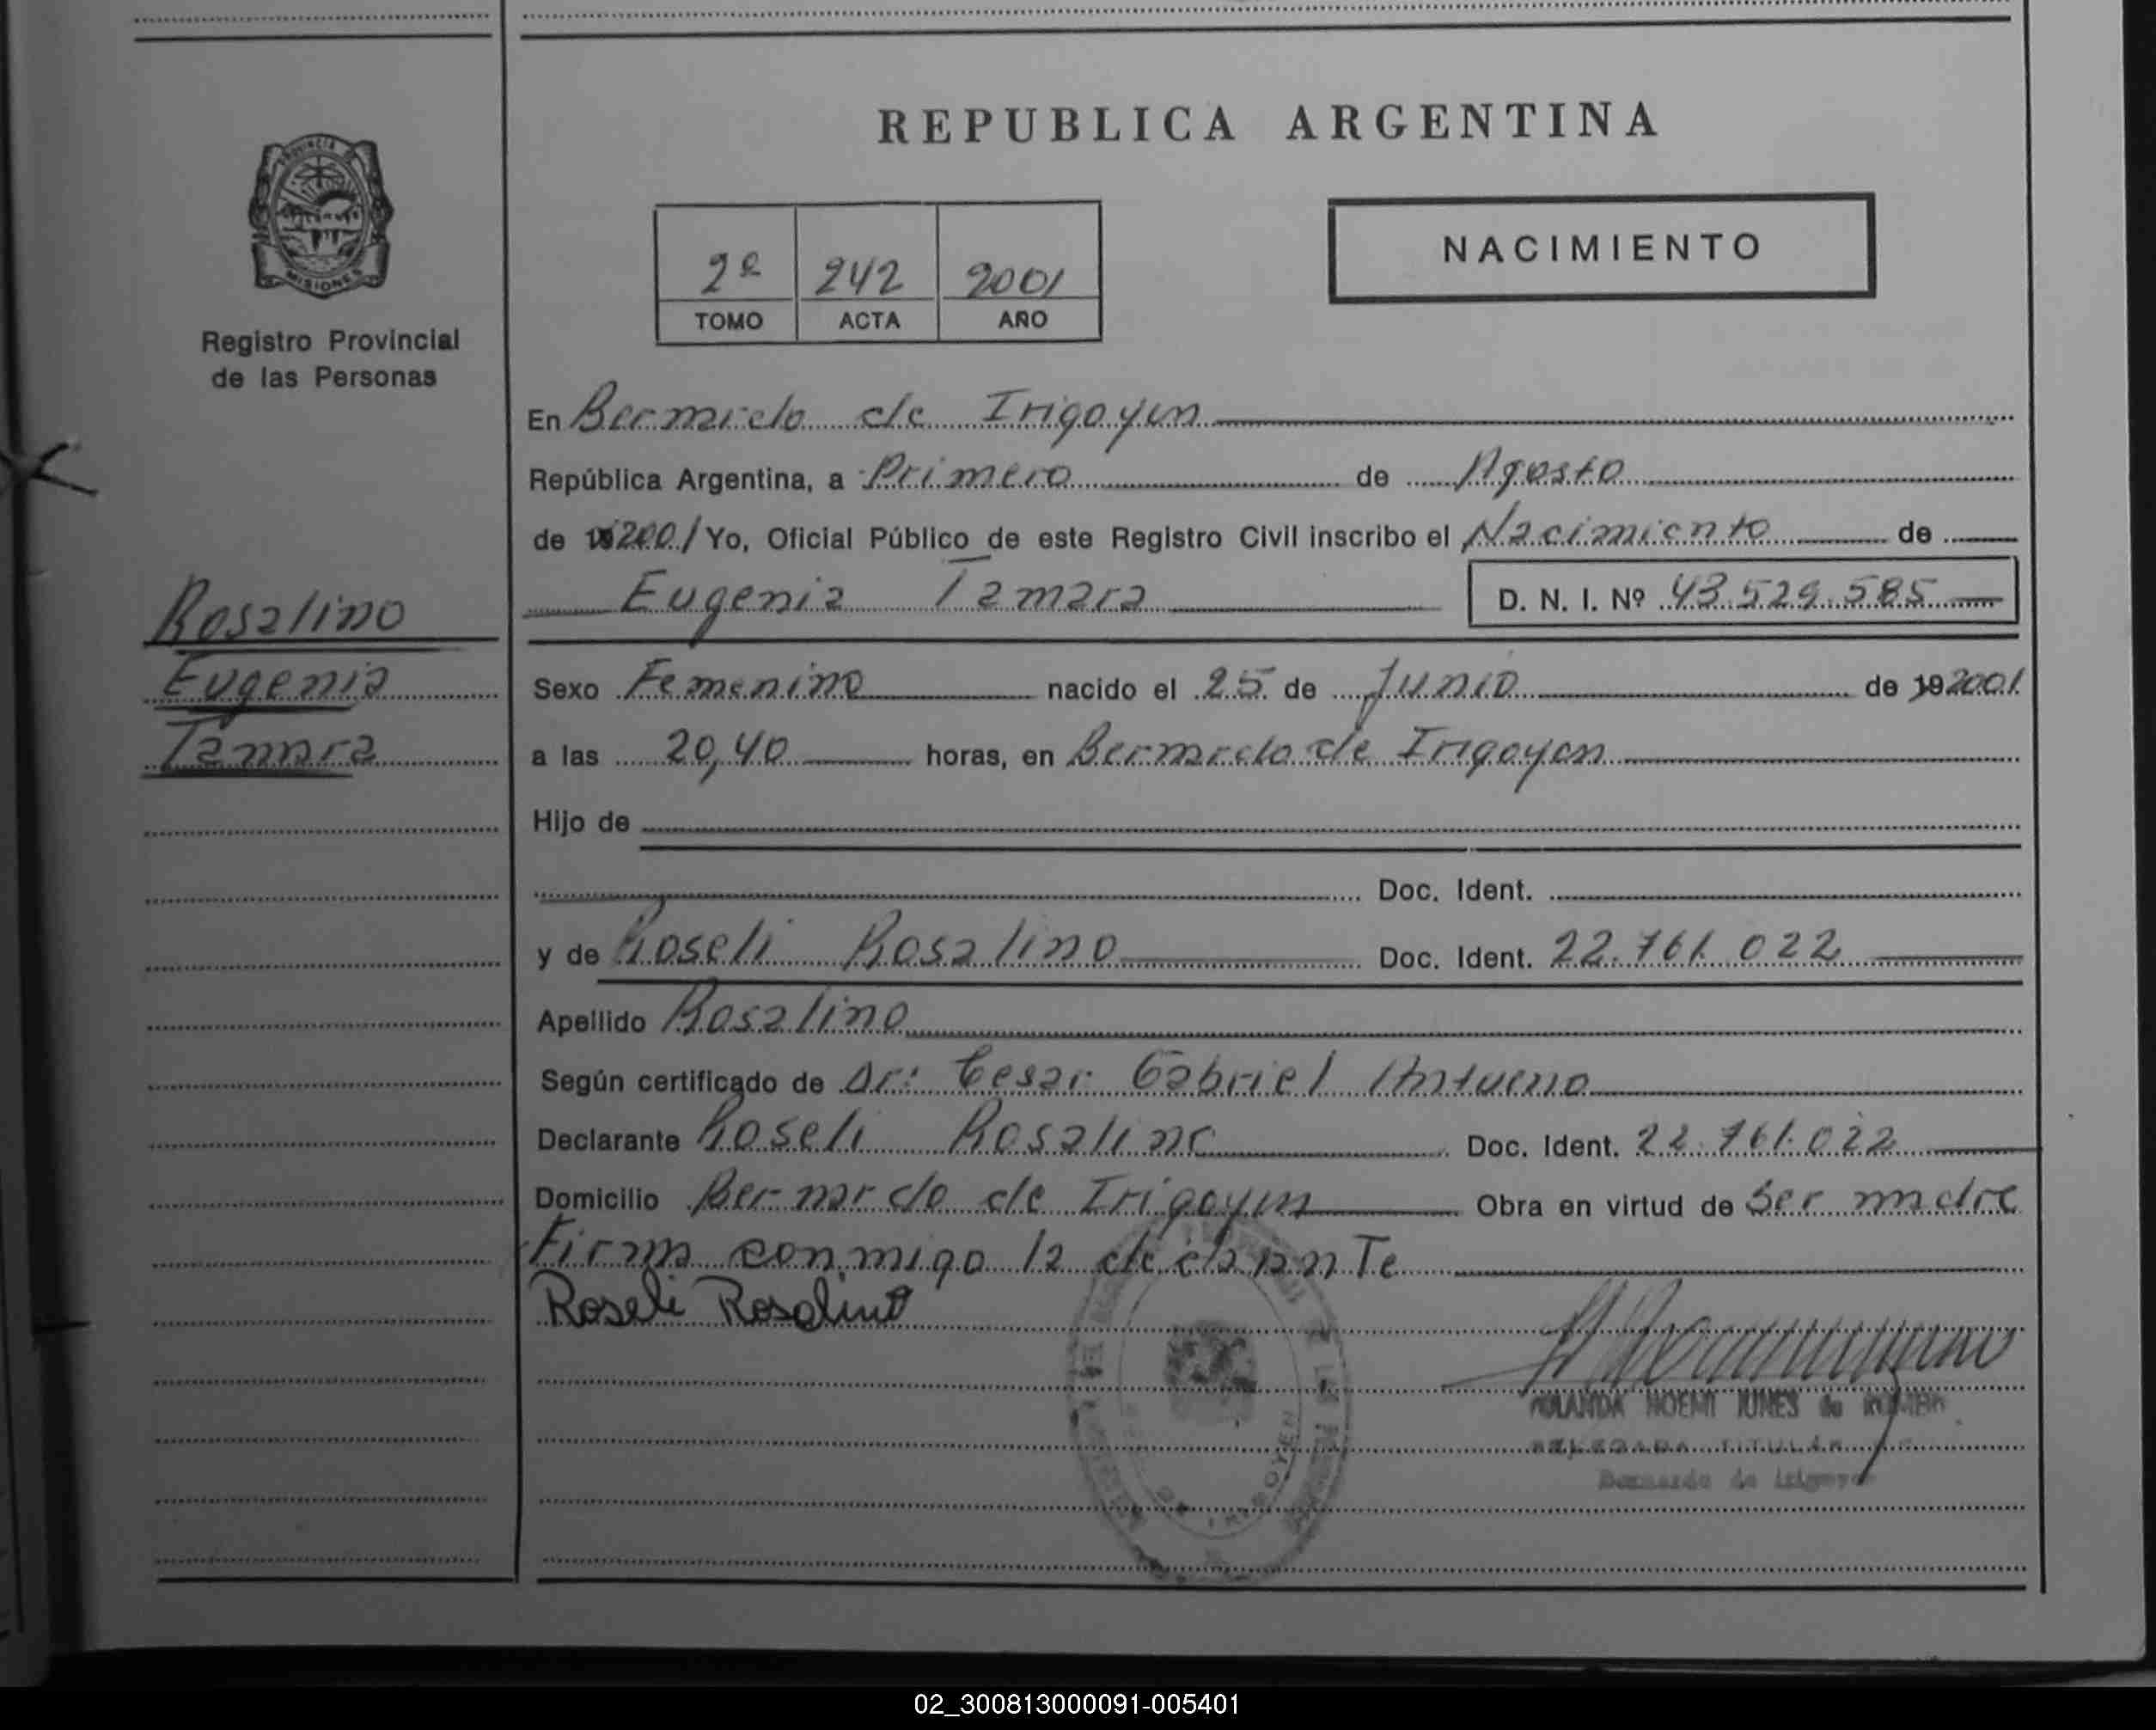 REPUBLICA ARGENTINA
PROVINCIA DE
MISIONES
Registro Provincial
de las Personas
2º 242 2001
TOMO ACTA AÑO
NACIMIENTO
En Bernardo de Irigoyen
República Argentina, a Primero de Agosto
de 2001 Yo, Oficial Público de este Registro Civil inscribo el Nacimiento de
Eugenia Tamara D. N. I. Nº 43.529.585
Rosalino
Eugenia
Tamara
Sexo Femenino nacido el 25 de Junio de 19 2001
a las 20,40 horas, en Bernardo de Irigoyen
Hijo de
Doc. Ident.
y de Roseli Rosalino Doc. Ident. 22.761.022
Apellido Rosalino
Según certificado de Dr: Cesar Gabriel
Declarante Roseli Rosalino Doc. Ident. 22.761.022
Domicilio Bernardo de Irigoyen Obra en virtud de Ser madre
Firma conmigo la
Roseli Rosalino
NOEMI de
DELEGADA TITULAR
Bernardo de Irigoyen
02_300813000091-005401